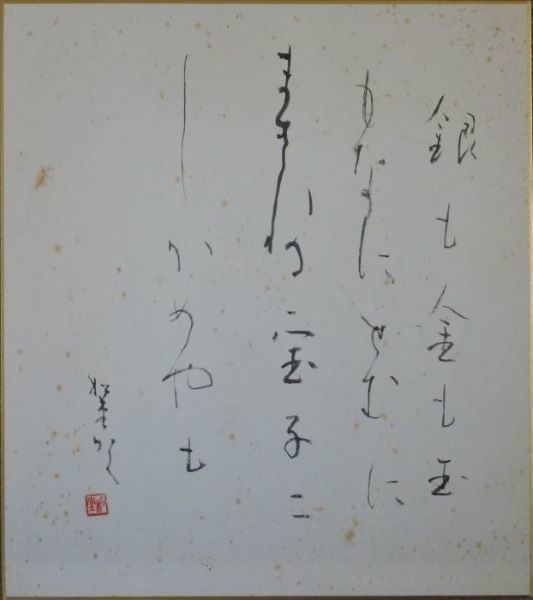 銀も金も玉
もなにせむに
まされる宝子二
しかめやも